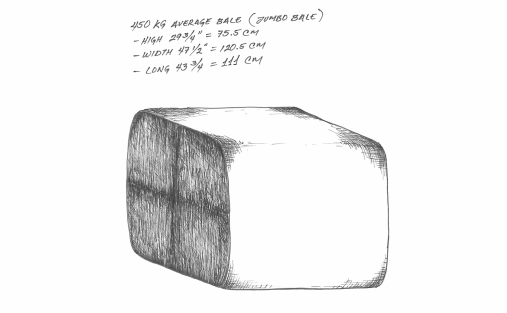 450 KG AVERAGE BALE (JUMBO BALE)
- HIGH 29 3/4" = 75.5 CM
- WIDTH 47 1/2" = 120.5 CM
- LONG 43 3/4 = 111 CM